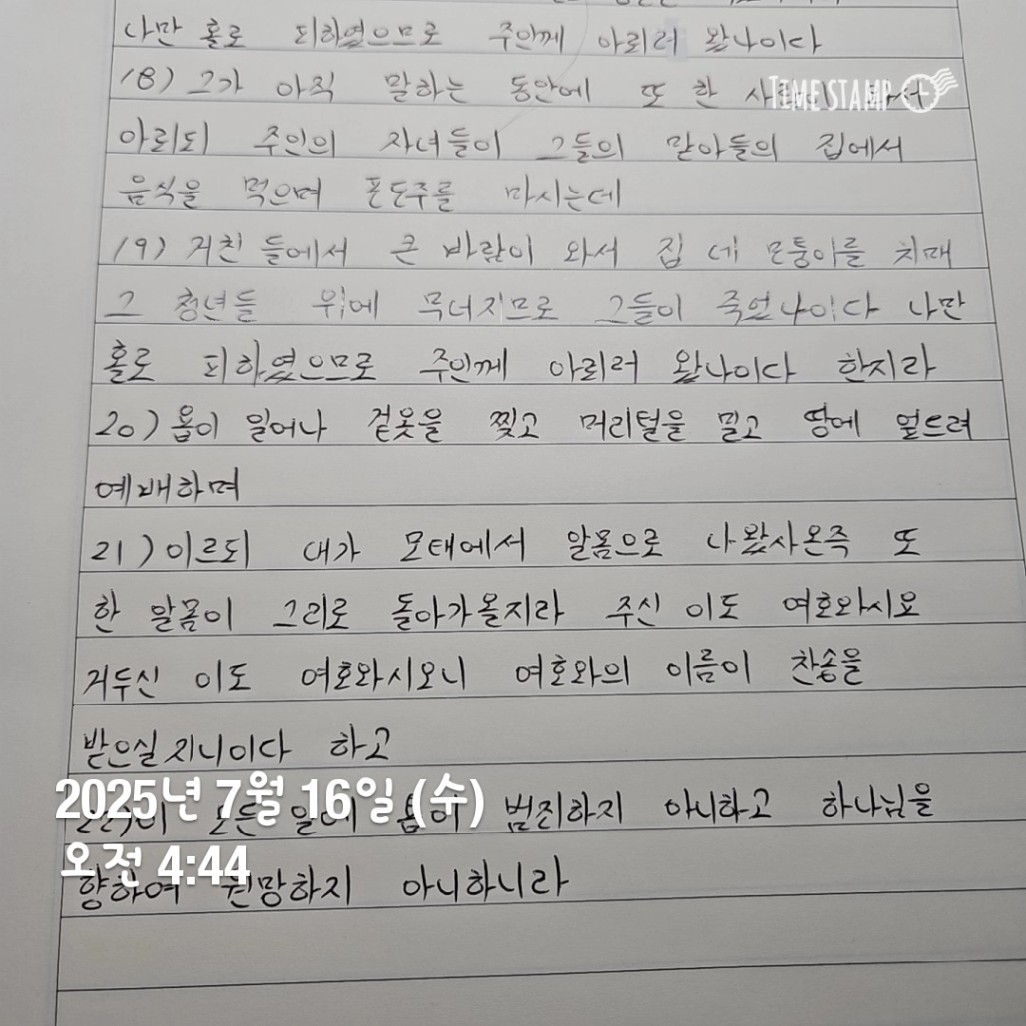 나만 홀로 피하였으므로 주인께 아뢰러 왔나이다
18) 그가 아직 말하는 동안에 또 한
TIMESTAMP
아뢰되 주인의 자녀들이 그들의 맏아들의 집에서
음식을 먹으며 포도주를 마시는데
19) 거친 들에서 큰 바람이 와서 집 네 모퉁이를 치매
그 청년들 위에 무너지므로 그들이 죽었나이다 나만
홀로 피하였으므로 주인께 아뢰러 왔나이다 한지라
20) 욥이 일어나 겉옷을 찢고 머리털을 밀고 땅에 엎드려
예배하며
21) 이르되 내가 모태에서 알몸으로 나왔사온즉 또
한 알몸이 그리로 돌아가올지라 주신 이도 여호와시요
거두신 이도 여호와시오니 여호와의 이름이 찬송을
받으실지니이다 하고
2025년 7월 16일 (수)
모든 일에 욥이 범죄하지 아니하고 하나님을
오전 4:44
향하여 원망하지 아니하니라